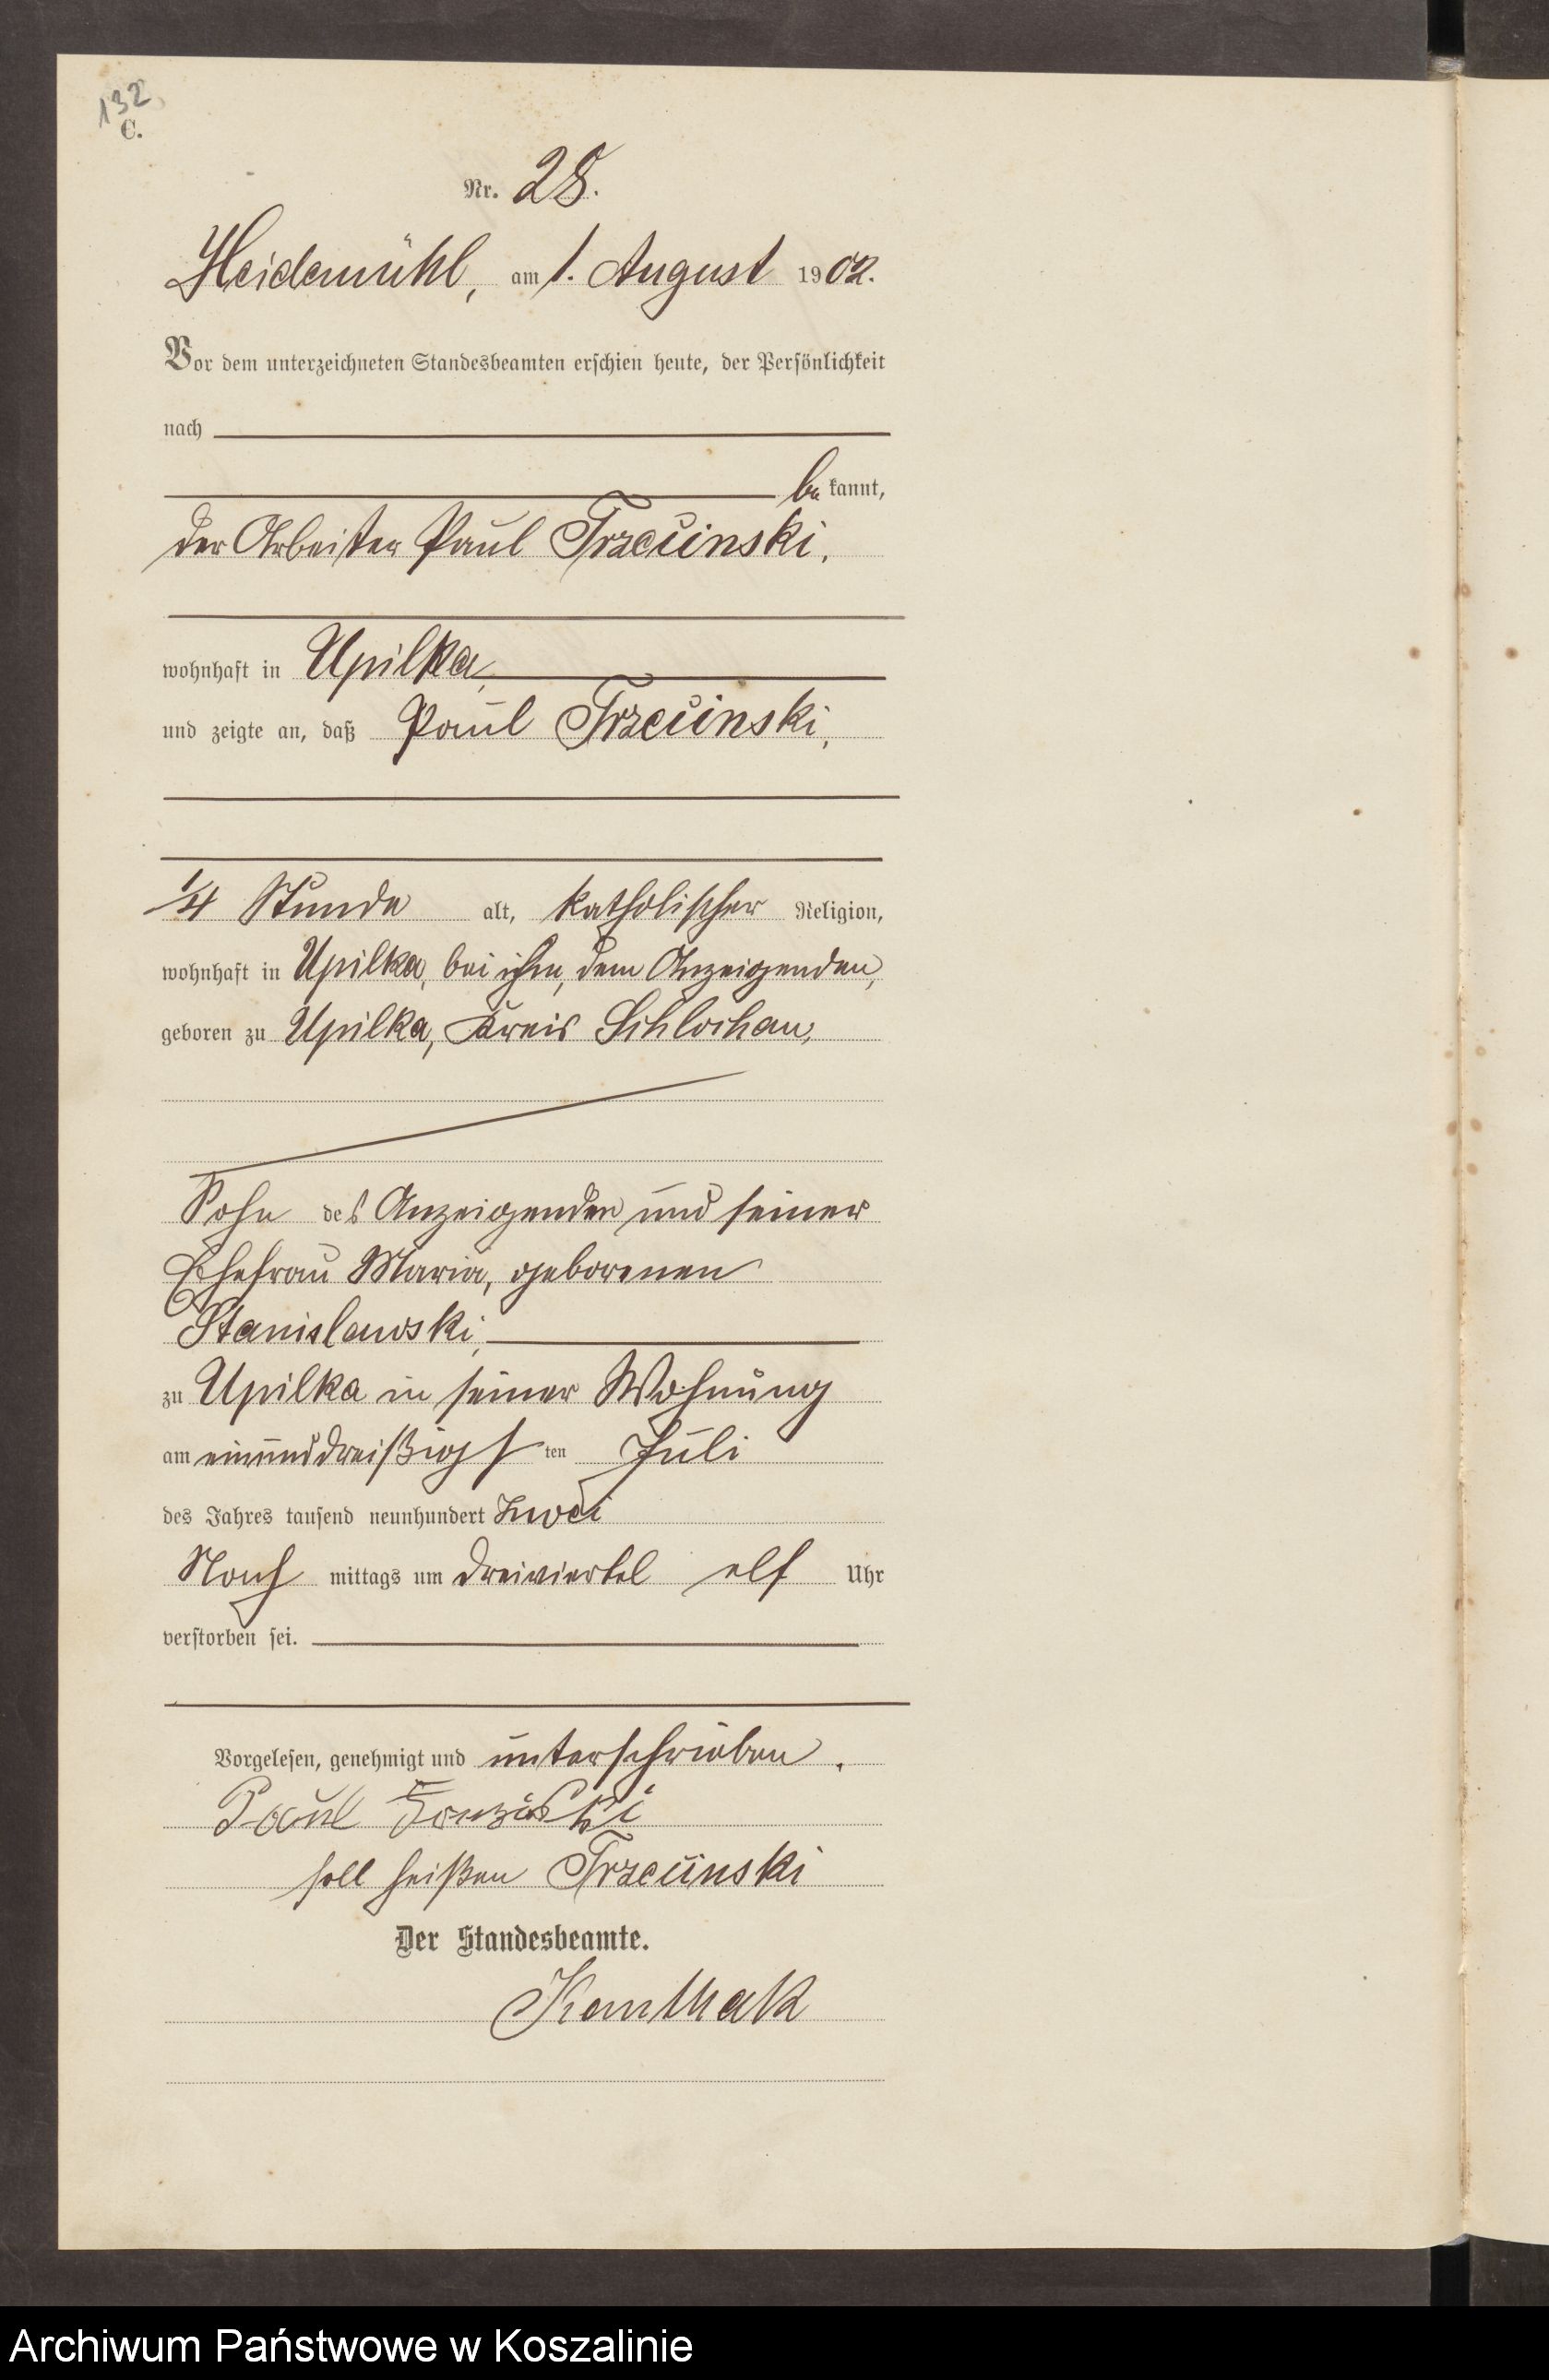 132
C.
Nr. 28.
Heidemühl, am 1. August 1902.
Vor dem unterzeichneten Standesbeamten erschien heute, der Persönlichkeit
nach
be kannt,
der Arbeiter Paul Trzcinski,
wohnhaft in Upilka,
und zeigte an, daß Paul Trzcinski,
1/4 Stunde alt, katholischer Religion,
wohnhaft in Upilka, bei ihm, dem Anzeigenden,
geboren zu Upilka, Kreis Schlochau,
Sohn des Anzeigenden und seiner
Ehefrau Maria, geborenen
Stanislawski,
zu Upilka in seiner Wohnung
am einunddreißigsten Juli
des Jahres tausend neunhundert zwei
Nach mittags um dreiviertel elf Uhr
verstorben sei.
Vorgelesen, genehmigt und unterschrieben.
Paul
soll heißen Trzcinski
Der Standesbeamte.
Archiwum Państwowe w Koszalinie